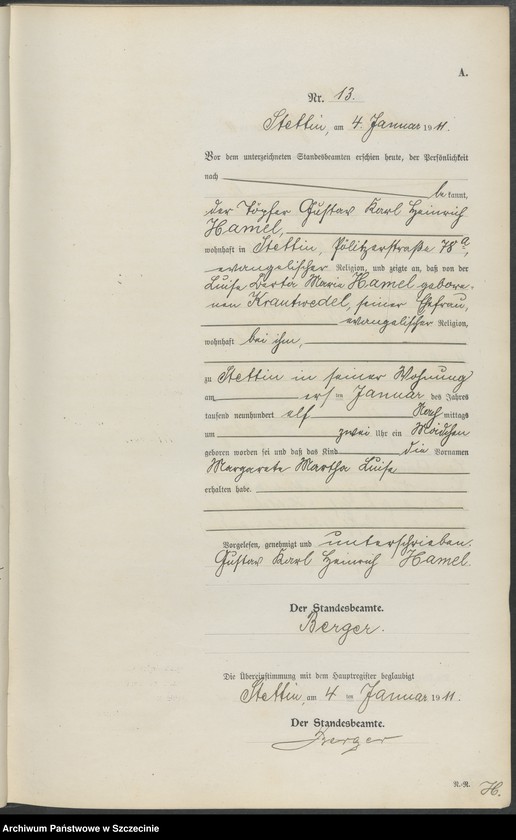 A.
Nr. 13.
Stettin, am 4. Januar 1911.
Vor dem unterzeichneten Standesbeamten erschien heute, der Persönlichkeit
nach
bekannt,
der Töpfer Gustav Karl Heinrich
Hamel,
wohnhaft in Stettin, Pölitzerstraße 78a,
evangelischer Religion, und zeigte an, daß von der
Luise Berta Marie Hamel gebore-
nen Krautwedel, seiner Ehefrau,
evangelischer Religion,
wohnhaft bei ihm,
zu Stettin in seiner Wohnung
am ersten Januar des Jahres
tausend neunhundert elf Nachmittags
um zwei Uhr ein Mädchen
geboren worden sei und daß das Kind die Vornamen
Margarete Martha Luise
erhalten habe.
Vorgelesen, genehmigt und unterschrieben.
Gustav Karl Heinrich Hamel.
Der Standesbeamte.
Berger.
Die Übereinstimmung mit dem Hauptregister beglaubigt
Stettin, am 4 ten Januar 1911.
Der Standesbeamte.
Berger
R.-R. H.
Archiwum Państwowe w Szczecinie